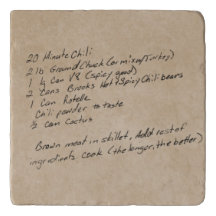 20 Minute Chili
2 lb Ground Chuck (or mix w/ turkey)
1 ½ Can V8 (spicy good)
2 Cans Brooks Hot & Spicy Chili beans
1 Can Rotelle
Chili powder to taste
½ can Cactus
Brown meat in skillet, Add rest of
ingredients cook (the longer, the better)